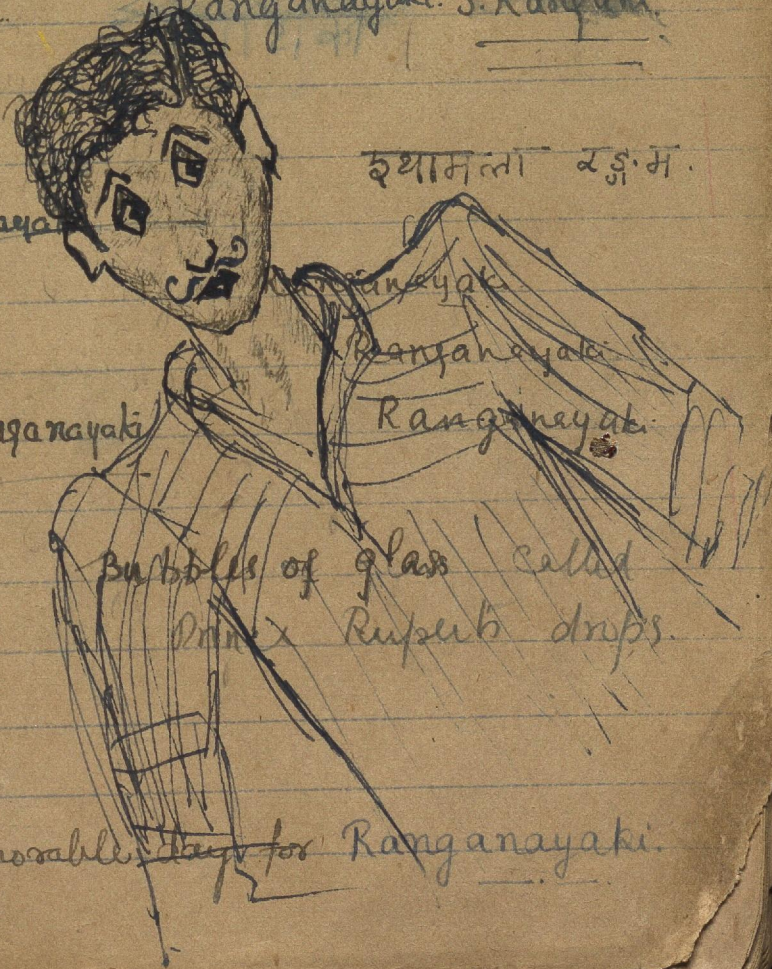 Ranganayaki. S. Rangam.
श्यामला रङ्गम.
ayaki
Ranganayaki
Ranganayaki
nganayaki Ranganayaki
Bubbles of glass called
Prince Ruperts drops.
morable day for Ranganayaki.